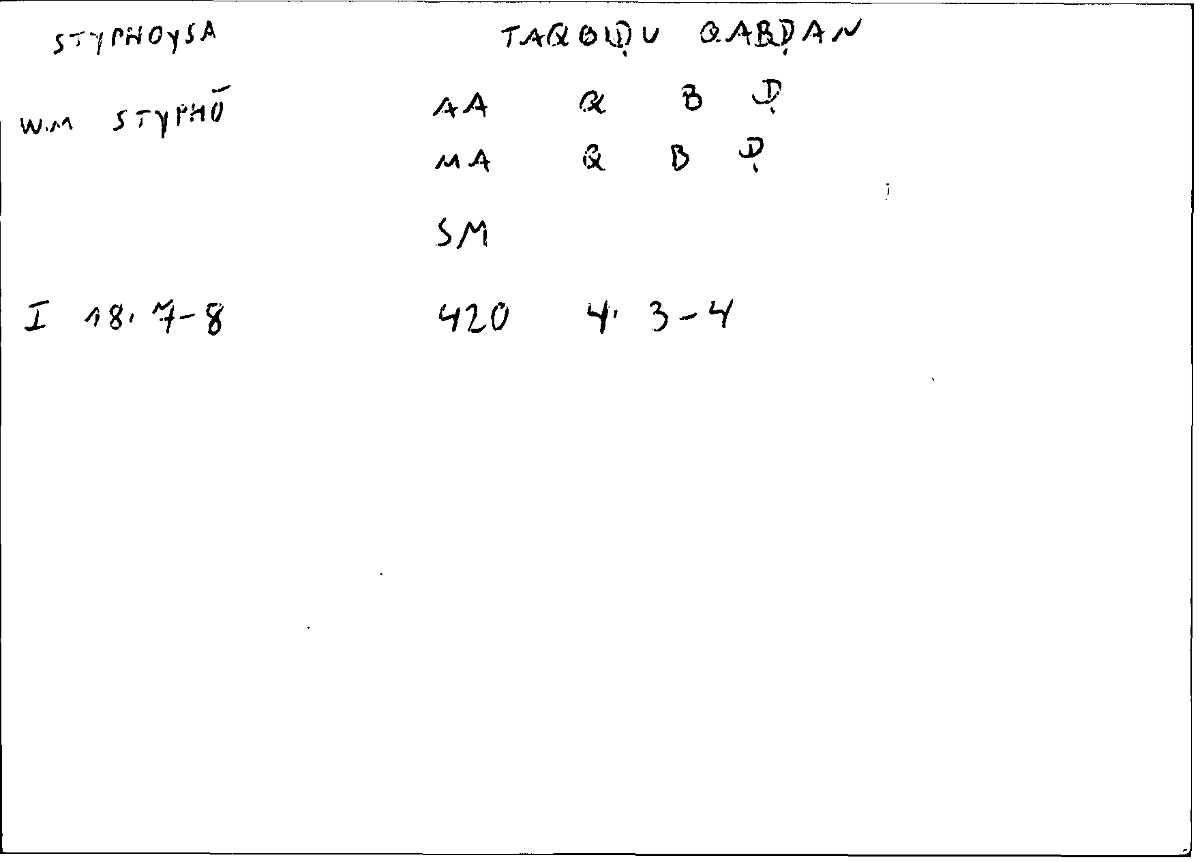 STYPHOYSA TAQBIḌU QABḌAN
W.M STYPHŌ AA Q B Ḍ
MA Q B Ḍ
SM
I 18. 7-8 420 4. 3-4